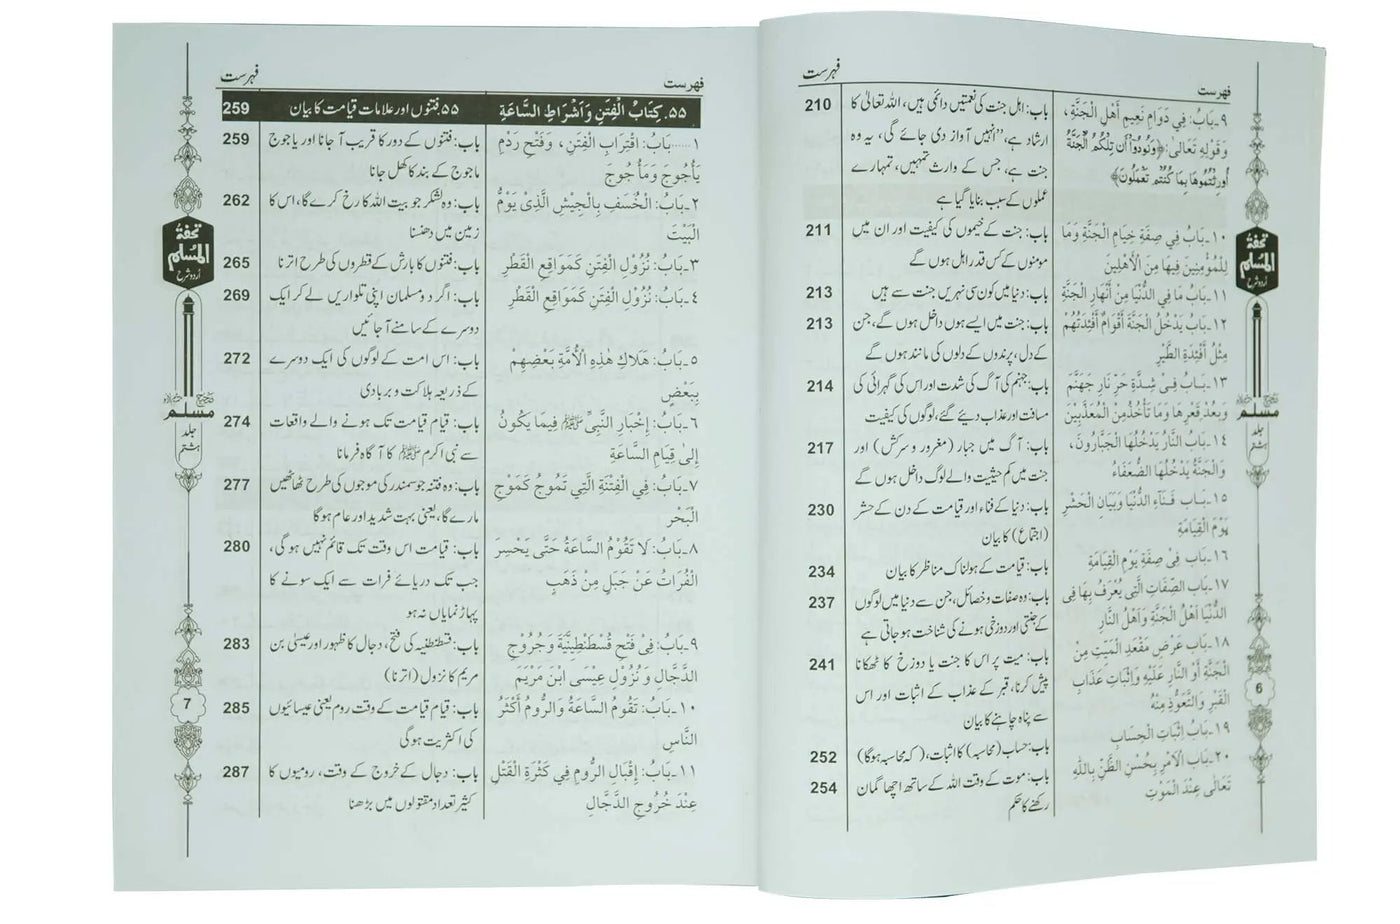 فہرست
فہرست
۹۔بَابُ: فِي دَوَامِ نَعِيمِ أَهْلِ الْجَنَّةِ،
وَقَوْلِهِ تَعَالَى: ﴿وَنُودُوٓا أَن تِلْكُمُ الْجَنَّةُ
أُورِثْتُمُوهَا بِمَا كُنتُمْ تَعْمَلُونَ﴾
باب: اہل جنت کی نعمتیں دائمی ہیں، اللہ تعالیٰ کا 210
ارشاد ہے، ’’انہیں آواز دی جائے گی، یہ وہ
جنت ہے، جس کے وارث تمہیں، تمہارے
عملوں کے سبب بنایا گیا ہے
۱۰۔بَابُ فِي صِفَةِ خِيَامِ الْجَنَّةِ وَمَا
لِلْمُؤْمِنِينَ فِيهَا مِنَ الْأَهْلِينَ
باب: جنت کے خیموں کی کیفیت اور ان میں 211
مومنوں کے کس قدر اہل ہوں گے
۱۱۔بَابُ مَا فِي الدُّنْيَا مِنْ أَنْهَارِ الْجَنَّةِ
باب: دنیا میں کون سی نہریں جنت سے ہیں 213
۱۲۔بَابُ يَدْخُلُ الْجَنَّةَ أَقْوَامٌ أَفْئِدَتُهُمْ
مِثْلُ أَفْئِدَةِ الطَّيْرِ
باب: جنت میں ایسے ہوں داخل ہوں گے، جن 213
کے دل، پرندوں کے دلوں کی مانند ہوں گے
۱۳۔بَابُ فِىْ شِدَّةِ حَرِّ نَارِ جَهَنَّمَ
وَبُعْدِ قَعْرِهَا وَمَا تَأْخُذُ مِنَ الْمُعَذَّبِيْنَ
باب: جہنم کی آگ کی شدت اور اس کی گہرائی کی 214
مسافت اور عذاب دیئے گئے، لوگوں کی کیفیت
۱۴۔بَابُ النَّارُ يَدْخُلُهَا الْجَبَّارُونَ،
وَالْجَنَّةُ يَدْخُلُهَا الضُّعَفَاءُ
باب: آگ میں جبار (مغرور و سرکش) اور 217
جنت میں کم حیثیت والے لوگ داخل ہوں گے
۱۵۔بَاب فَنَآءِ الدُّنْيَا وَبَيَانِ الْحَشْرِ
يَوْمَ الْقِيَامَةِ
باب: دنیا کے فناء اور قیامت کے دن کے حشر 230
(اجتماع) کا بیان
۱۶۔بَاب فِىْ صِفَةِ يَوْمِ الْقِيَامَةِ
باب: قیامت کے ہولناک مناظر کا بیان 234
۱۷۔بَاب الصِّفَاتِ الَّتِى يُعْرَفُ بِهَا فِى
الدُّنْيَا اَهْلُ الْجَنَّةِ وَاَهْلُ النَّارِ
باب: وہ صفات و خصائل، جن سے دنیا میں لوگوں 237
کے جنتی اور دوزخی ہونے کی شناخت ہو جاتی ہے
۱۸۔بَاب عَرْضِ مَقْعَدِ الْمَيِّتِ مِنَ
الْجَنَّةِ أَوِ النَّارِ عَلَيْهِ وَإِثْبَاتِ عَذَابِ
الْقَبْرِ وَالتَّعَوُّذِ مِنْهُ
باب: میت پر اس کا جنت یا دوزخ کا ٹھکانا 241
پیش کرنا، قبر کے عذاب کے اثبات اور اس
سے پناہ چاہنے کا بیان
۱۹۔بَابُ إِثْبَاتِ الْحِسَابِ
باب: حساب (محاسبہ) کا اثبات، (کہ محاسبہ ہوگا) 252
۲۰۔بَابُ الْاَمْرِ بِحُسْنِ الظَّنِّ بِاللهِ
تَعَالٰى عِنْدَ الْمَوْتِ
باب: موت کے وقت اللہ کے ساتھ اچھا گمان 254
رکھنے کا حکم
تحفۃ
المسلم
اُردو شرح
صحیح
مسلم
جلد
ہشتم
6
فہرست
فہرست
۵۵۔ كِتَابُ الْفِتَنِ وَاَشْرَاطِ السَّاعَةِ
۵۵ فتنوں اور علامات قیامت کا بیان 259
۱.....بَابُ: اقْتِرَابِ الْفِتَنِ، وَفَتْحِ رَدْمِ
يَأْجُوجَ وَمَأْجُوجَ
باب: فتنوں کے دور کا قریب آ جانا اور یاجوج 259
ماجوج کے بند کا کھل جانا
۲۔بَابُ: الْخَسْفِ بِالْجَيْشِ الَّذِىْ يَؤُمُّ
الْبَيْتَ
باب: وہ لشکر جو بیت اللہ کا رخ کرے گا، اس کا 262
زمین میں دھنسنا
۳۔بَابُ: نُزُوْلِ الْفِتَنِ كَمَوَاقِعِ الْقَطْرِ
باب: فتنوں کا بارش کے قطروں کی طرح اترنا 265
۴۔بَابُ: نُزُوْلِ الْفِتَنِ كَمَوَاقِعِ الْقَطْرِ
باب: اگر دو مسلمان اپنی تلواریں لے کر ایک 269
دوسرے کے سامنے آ جائیں
۵۔بَابُ: هَلَاكِ هٰذِهِ الْاُمَّةِ بَعْضِهِمْ
بِبَعْضٍ
باب: اس امت کے لوگوں کی ایک دوسرے 272
کے ذریعہ ہلاکت و بربادی
۶۔بَابُ: إِخْبَارِ النَّبِىِّ ﷺ فِيمَا يَكُونُ
إِلىٰ قِيَامِ السَّاعَةِ
باب: قیام قیامت تک ہونے والے واقعات 274
سے نبی اکرم ﷺ کا آگاہ فرمانا
۷۔بَابُ: فِي الْفِتْنَةِ الَّتِي تَمُوجُ كَمَوْجِ
الْبَحْرِ
باب: وہ فتنہ جو سمندر کی موجوں کی طرح ٹھاٹھیں 277
مارے گا، یعنی بہت شدید اور عام ہوگا
۸۔بَابُ: لَا تَقُوْمُ السَّاعَةُ حَتّٰى يَحْسِرَ
الْفُرَاتُ عَنْ جَبَلٍ مِنْ ذَهَبٍ
باب: قیامت اس وقت تک قائم نہیں ہو گی، 280
جب تک دریائے فرات سے ایک سونے کا
پہاڑ نمایاں نہ ہو
۹۔بَابُ: فِىْ فَتْحِ قُسْطَنْطِينِيَّةَ وَخُرُوْجِ
الدَّجَّالِ وَ نُزُوْلِ عِيْسَى ابْنِ مَرْيَمَ
باب: قسطنطنیہ کی فتح، دجال کا ظہور اور عیسیٰ بن 283
مریم کا نزول (اترنا)
۱۰۔بَابُ: تَقُوْمُ السَّاعَةُ وَالرُّومُ أَكْثَرُ
النَّاسِ
باب: قیام قیامت کے وقت روم یعنی عیسائیوں 285
کی اکثریت ہوگی
۱۱۔بَابُ: إِقْبَالِ الرُّومِ فِي كَثْرَةِ الْقَتْلِ
عِنْدَ خُرُوجِ الدَّجَّالِ
باب: دجال کے خروج کے وقت، رومیوں کا 287
کثیر تعداد مقتولوں میں بڑھنا
تحفۃ
المسلم
اُردو شرح
صحیح
مسلم
جلد
ہشتم
7